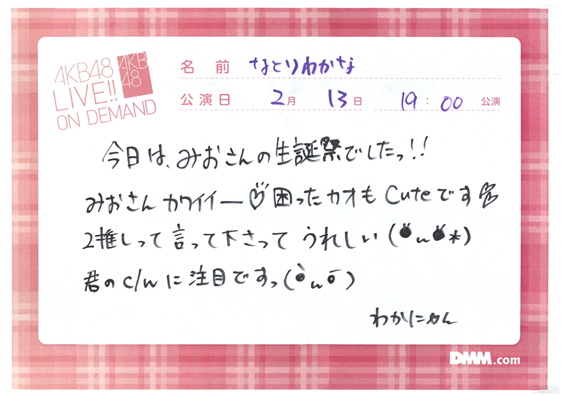 AKB48
LIVE!!
ON DEMAND
AKB
48
名 前 なとりわかな
公演日 2月 13日 19:00 公演
今日は、みおさんの生誕祭でしたっ!!
みおさん カワイイー♡困ったカオも Cuteです
2推しって言って下さって うれしい (●u●*)
君のc/wに注目ですっ(òuó)
わかにゃん
DMM.com